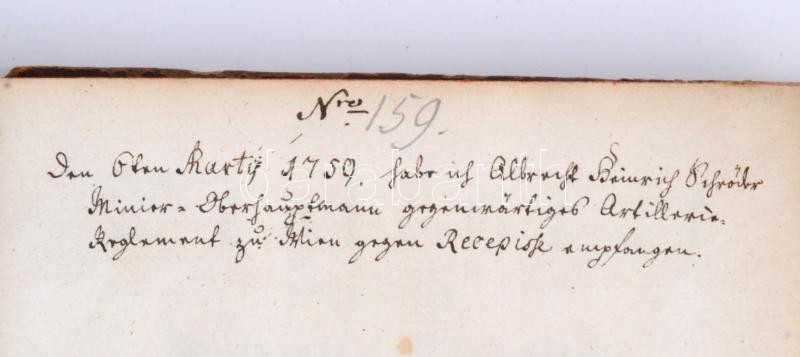 Nro 159.
Den 6ten Martij 1759. habe ich Albrecht Heinrich Schröder
Minier-Oberhauptmann gegenwärtiges Artillerie-
Reglement zu Wien gegen Recepisse empfangen.
darabanth